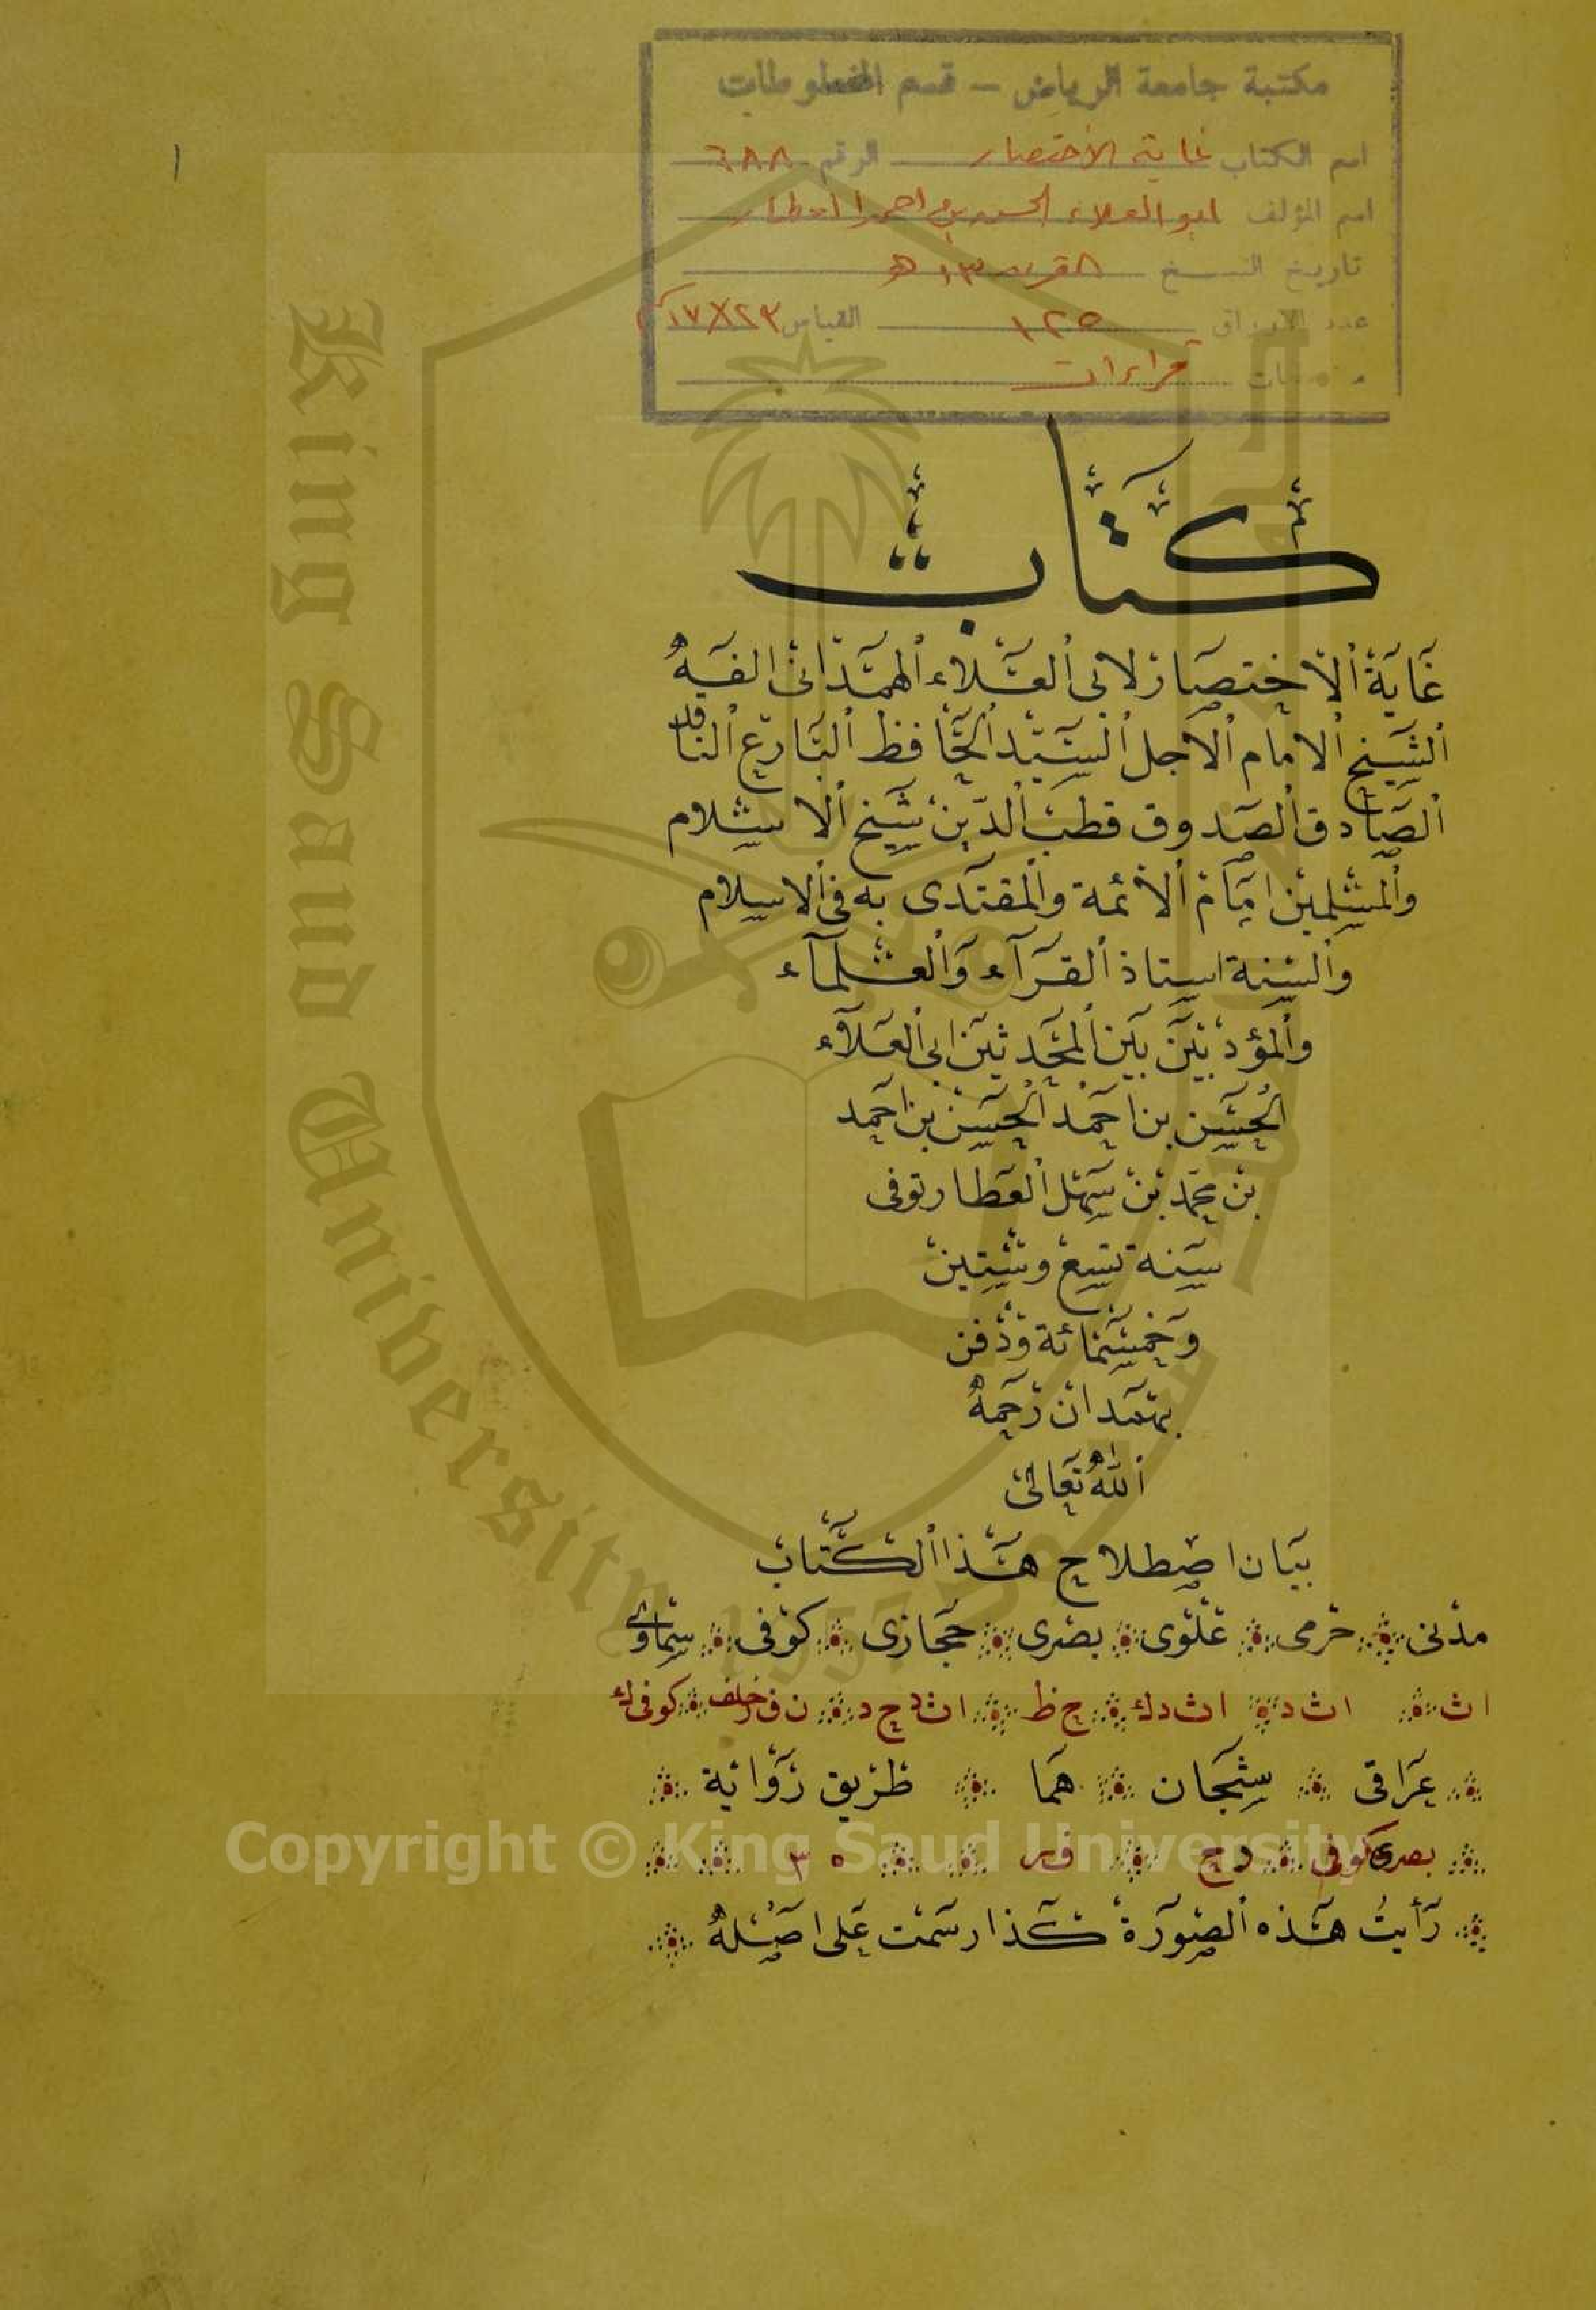 مكتبة جامعة الرياض — قسم المخطوطات
اسم الكتاب غاية الاختصار الرقم ٦٨٨
اسم المؤلف ابو العلاء الحسن بن احمد العطار
تاريخ النسخ القرن ١٣ هـ
عدد الاوراق ١٢٥ القياس ٢٣×١٧
قراءات
١
كتاب
غاية الاختصار لابى العلاء الهمذانى الفه
الشيخ الامام الاجل السيد الحافظ البارع الناقد
الصادق الصدوق قطب الدين شيخ الاسلام
والمسلمين امام الائمة والمقتدى به فى الاسلام
والسنة استاذ القرآء والعلمآء
والمؤدبين بين المحدثين ابى العلآء
الحسن بن احمد الحسن بن احمد
بن محمد بن سهل العطار توفى
سنة تسع وستين
وخمسمائة ودفن
بهمدان رحمه
الله تعالى
بيان اصطلاح هذا الكتاب
مدنى حرمى علوى بصرى حجازى كوفى سماوى
اث اث د اث دك ح ظ اث د ح د ن ف ر خلف كوفى ك
عراقى هما طريق رواية
بصرى كوفى د ح ف ر ٥ ٣
رأيت هذه الصورة كذا رسمت على اصله
King Saud University
1957
Copyright © King Saud University